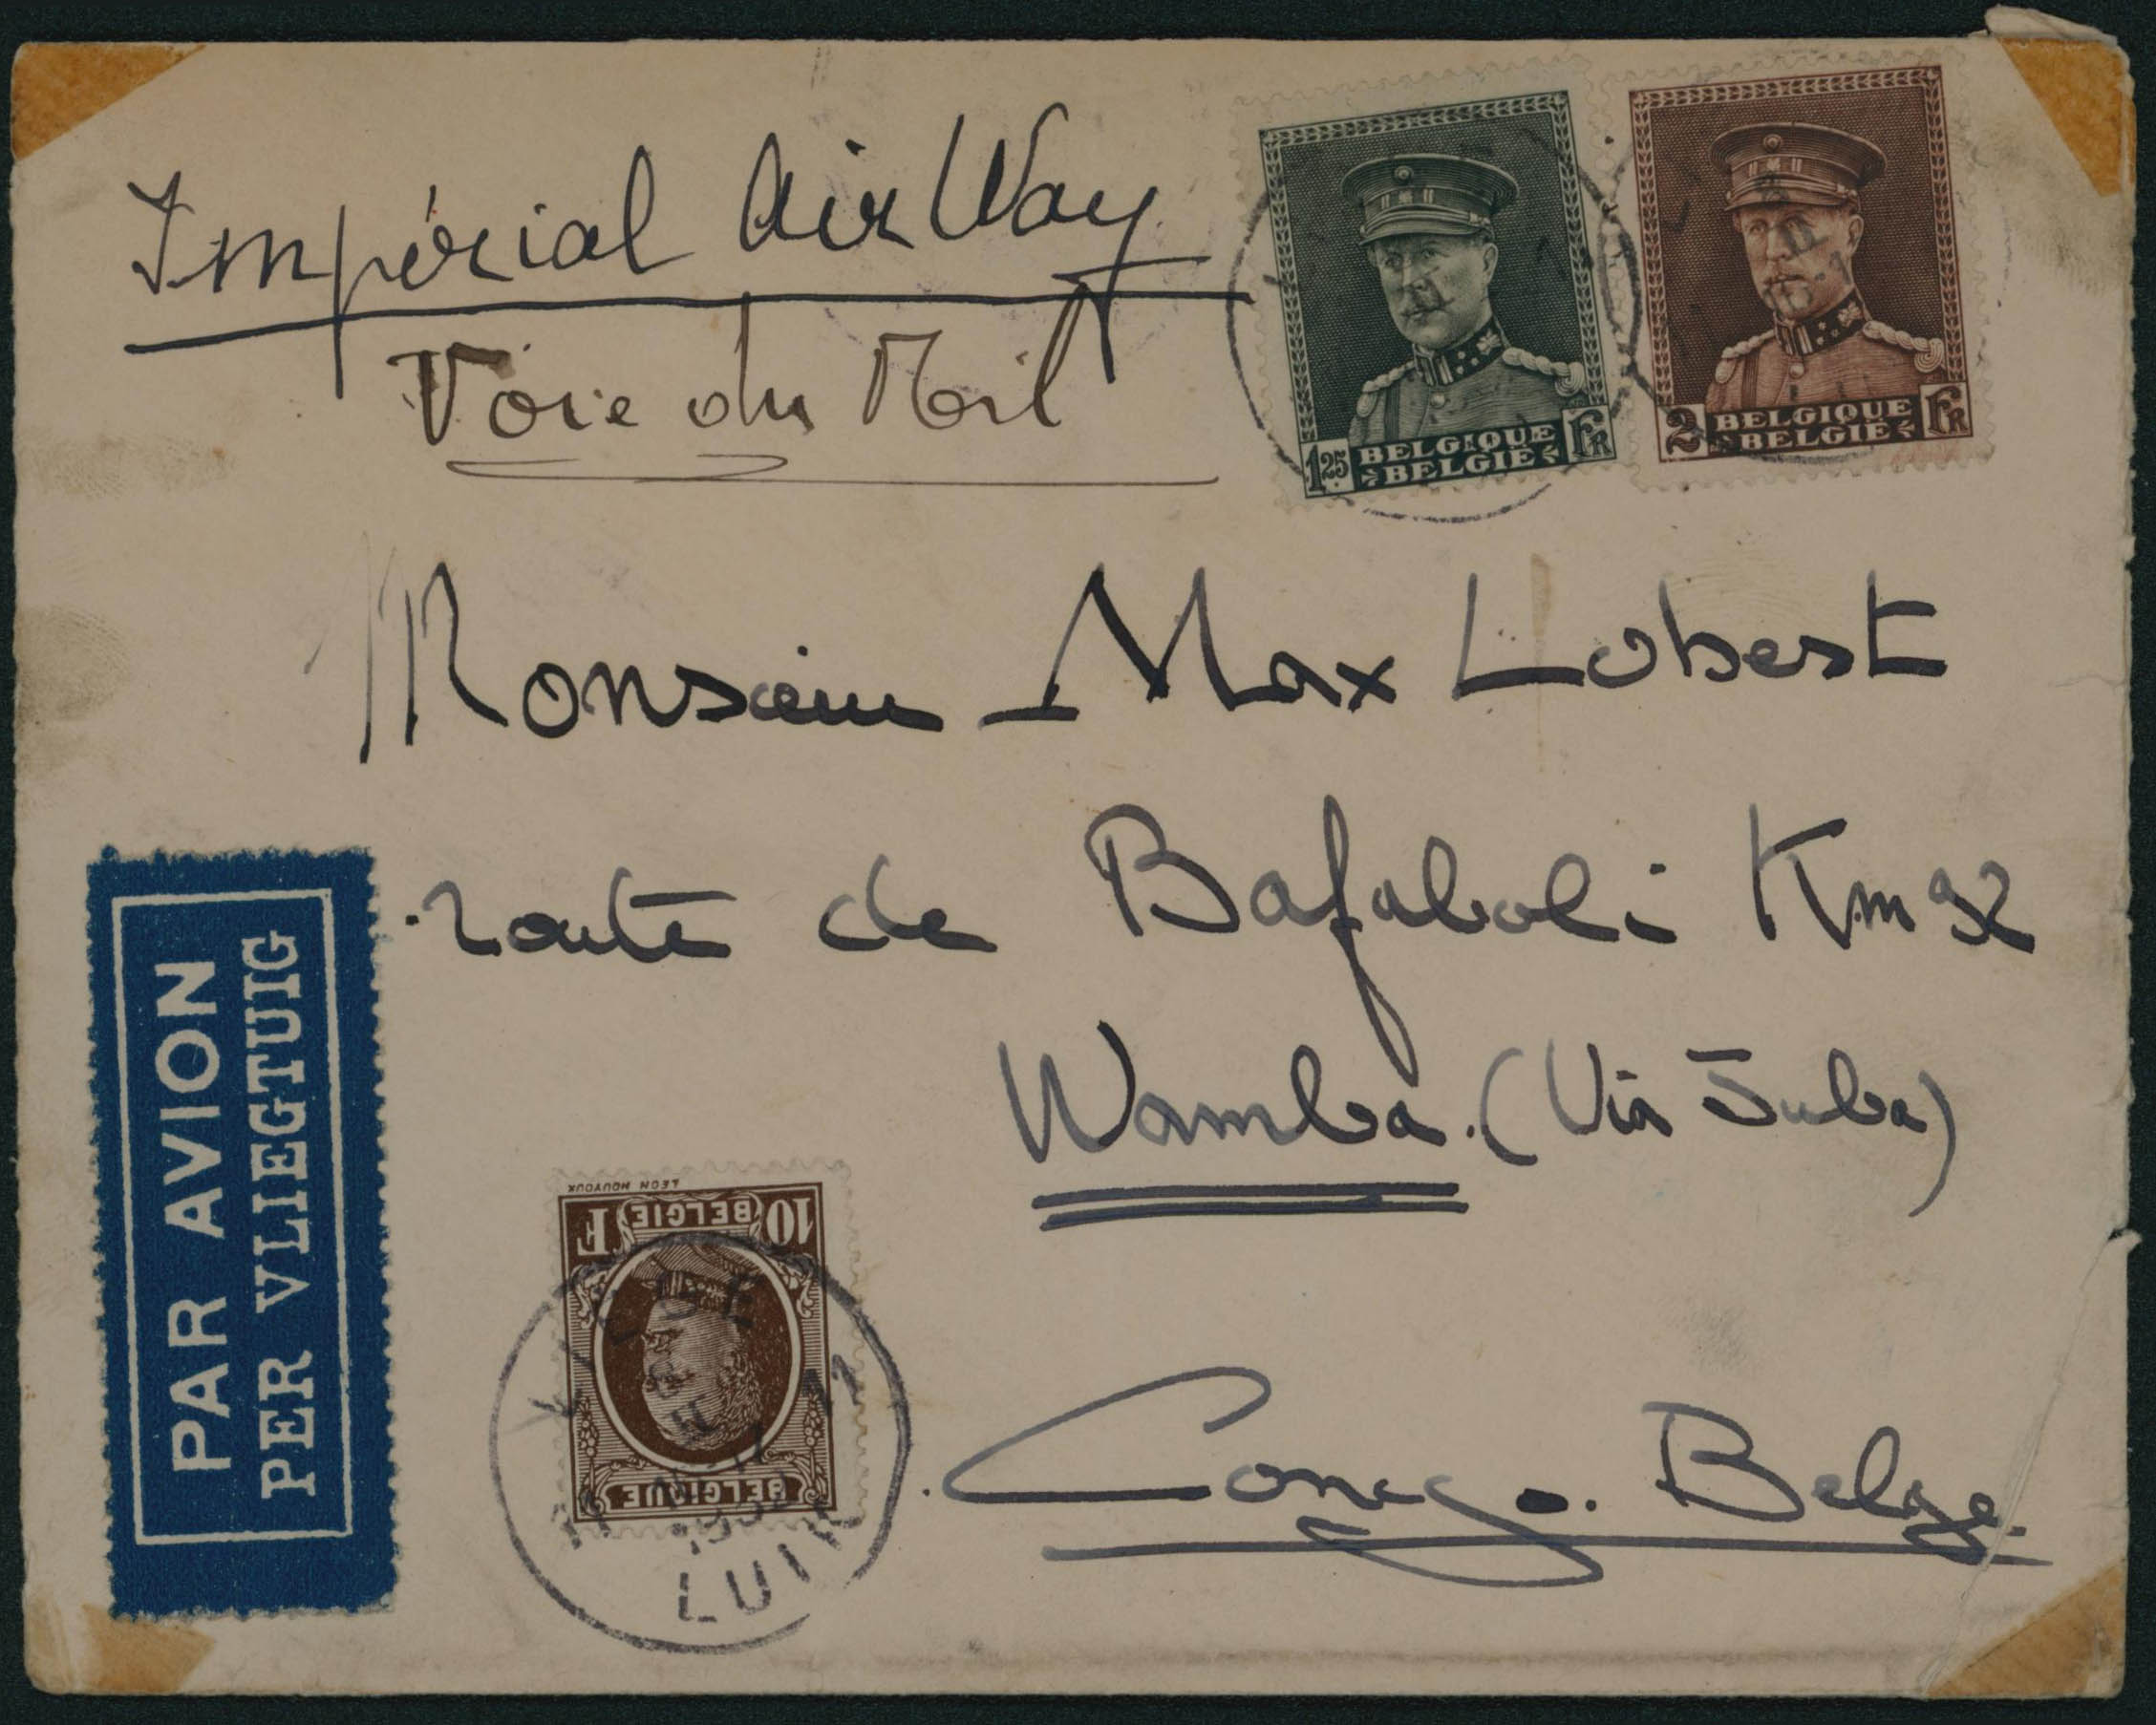 Impérial Air Way
Voie du Nil
1.25 BELGIQUE BELGIË FR
2 BELGIQUE BELGIË FR
Monsieur Max Lobest
route de Bafaboli Km 92
Wamba. (Via Juba)
Congo. Belge.
PAR AVION
PER VLIEGTUIG
LEON HOUYOUX
10 BELGIE F
BELGIQUE
1932
LUIK